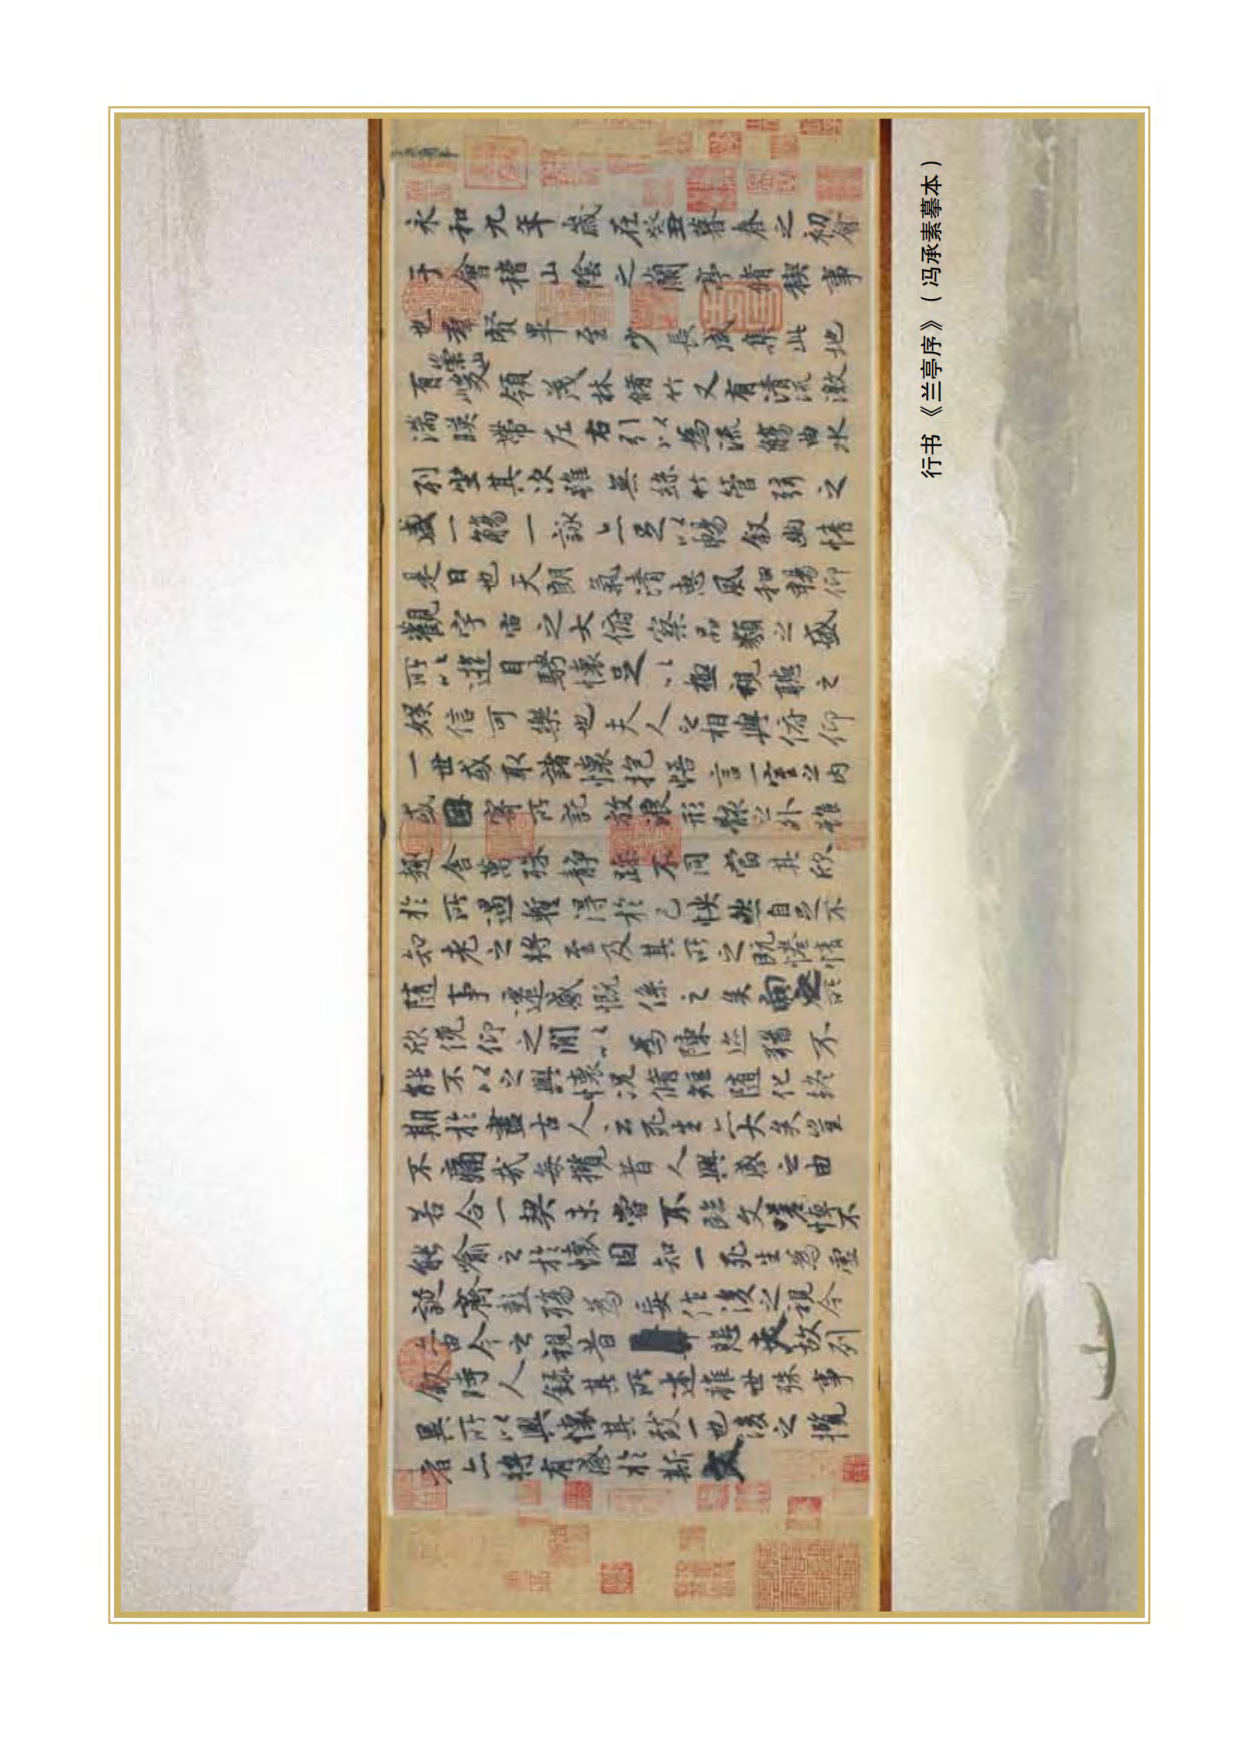 永和九年歲在癸丑暮春之初會
于會稽山陰之蘭亭脩稧事
也羣賢畢至少長咸集此地
有崇山峻領茂林脩竹又有清流激
湍暎帶左右引以為流觴曲水
列坐其次雖無絲竹管弦之
盛一觴一詠亦足以暢叙幽情
是日也天朗氣清惠風和暢仰
觀宇宙之大俯察品類之盛
所以遊目騁懷足以極視聽之
娛信可樂也夫人之相與俯仰
一世或取諸懷抱悟言一室之內
或因寄所託放浪形骸之外雖
趣舍萬殊靜躁不同當其欣
於所遇暫得於己怏然自足不
知老之將至及其所之既惓情
隨事遷感慨係之矣向之所
欣俛仰之閒以為陳迹猶不
能不以之興懷況脩短隨化終
期於盡古人云死生亦大矣豈
不痛哉每攬昔人興感之由
若合一契未嘗不臨文嗟悼不
能喻之於懷固知一死生為虛
誕齊彭殤為妄作後之視今
亦由今之視昔悲夫故列
敘時人錄其所述雖世殊事
異所以興懷其致一也後之攬
者亦將有感於斯文
行书《兰亭序》（冯承素摹本）